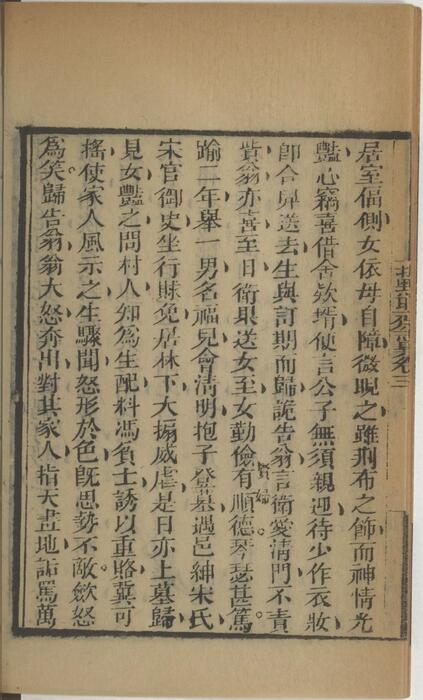 卷三
居室偪側女依母自障微睨之雖荊布之飾而神情光
豔心竊喜借舍欵壻便言公子無須親迎待少作衣妝
卽合舁送去生與訂期而歸詭告翁言衛愛清門不責
貲翁亦喜至日衛果送女至女勤儉有順德。琴瑟甚篤。
賢婦
踰二年舉一男名福兒會清明抱子登墓遇邑紳宋氏
宋官御史坐行賕免居林下大搧威虐是日亦上墓歸
見女豔之問村人知爲生配料馮貧士誘以重賂冀可
搖使家人風示之生驟聞怒形於色旣思勢不敵。斂怒
爲笑。歸告翁翁大怒奔出對其家人指天畫地詬罵萬